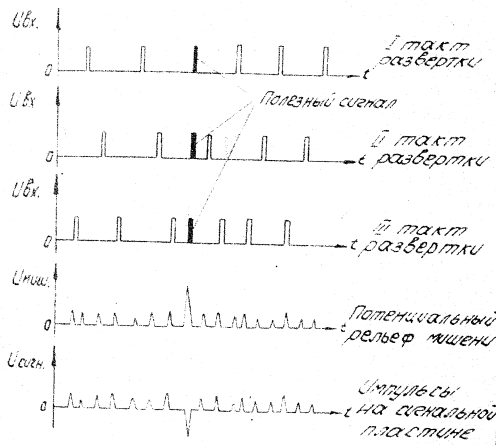 Uвх.
0
t
I такт
развертки
Полезный сигнал
Uвх
0
t
II такт
развертки
Uвх.
0
t
III такт
развертки
Uмиш.
0
t
Потенциальный
рельеф мишени
Uсигн.
0
t
Импульсы
на сигнальной
пластине